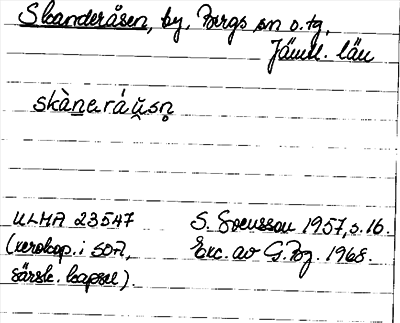 Skanderåsen, by, Bergs sn o. tg,
Jämtl. län
skàn̲eráu̯sn̥
ULMA 23547
(xerokop. i SOA,
särsk. kapsel).
S. Svensson 1957, s. 16.
Exc. av G. Pg. 1968.